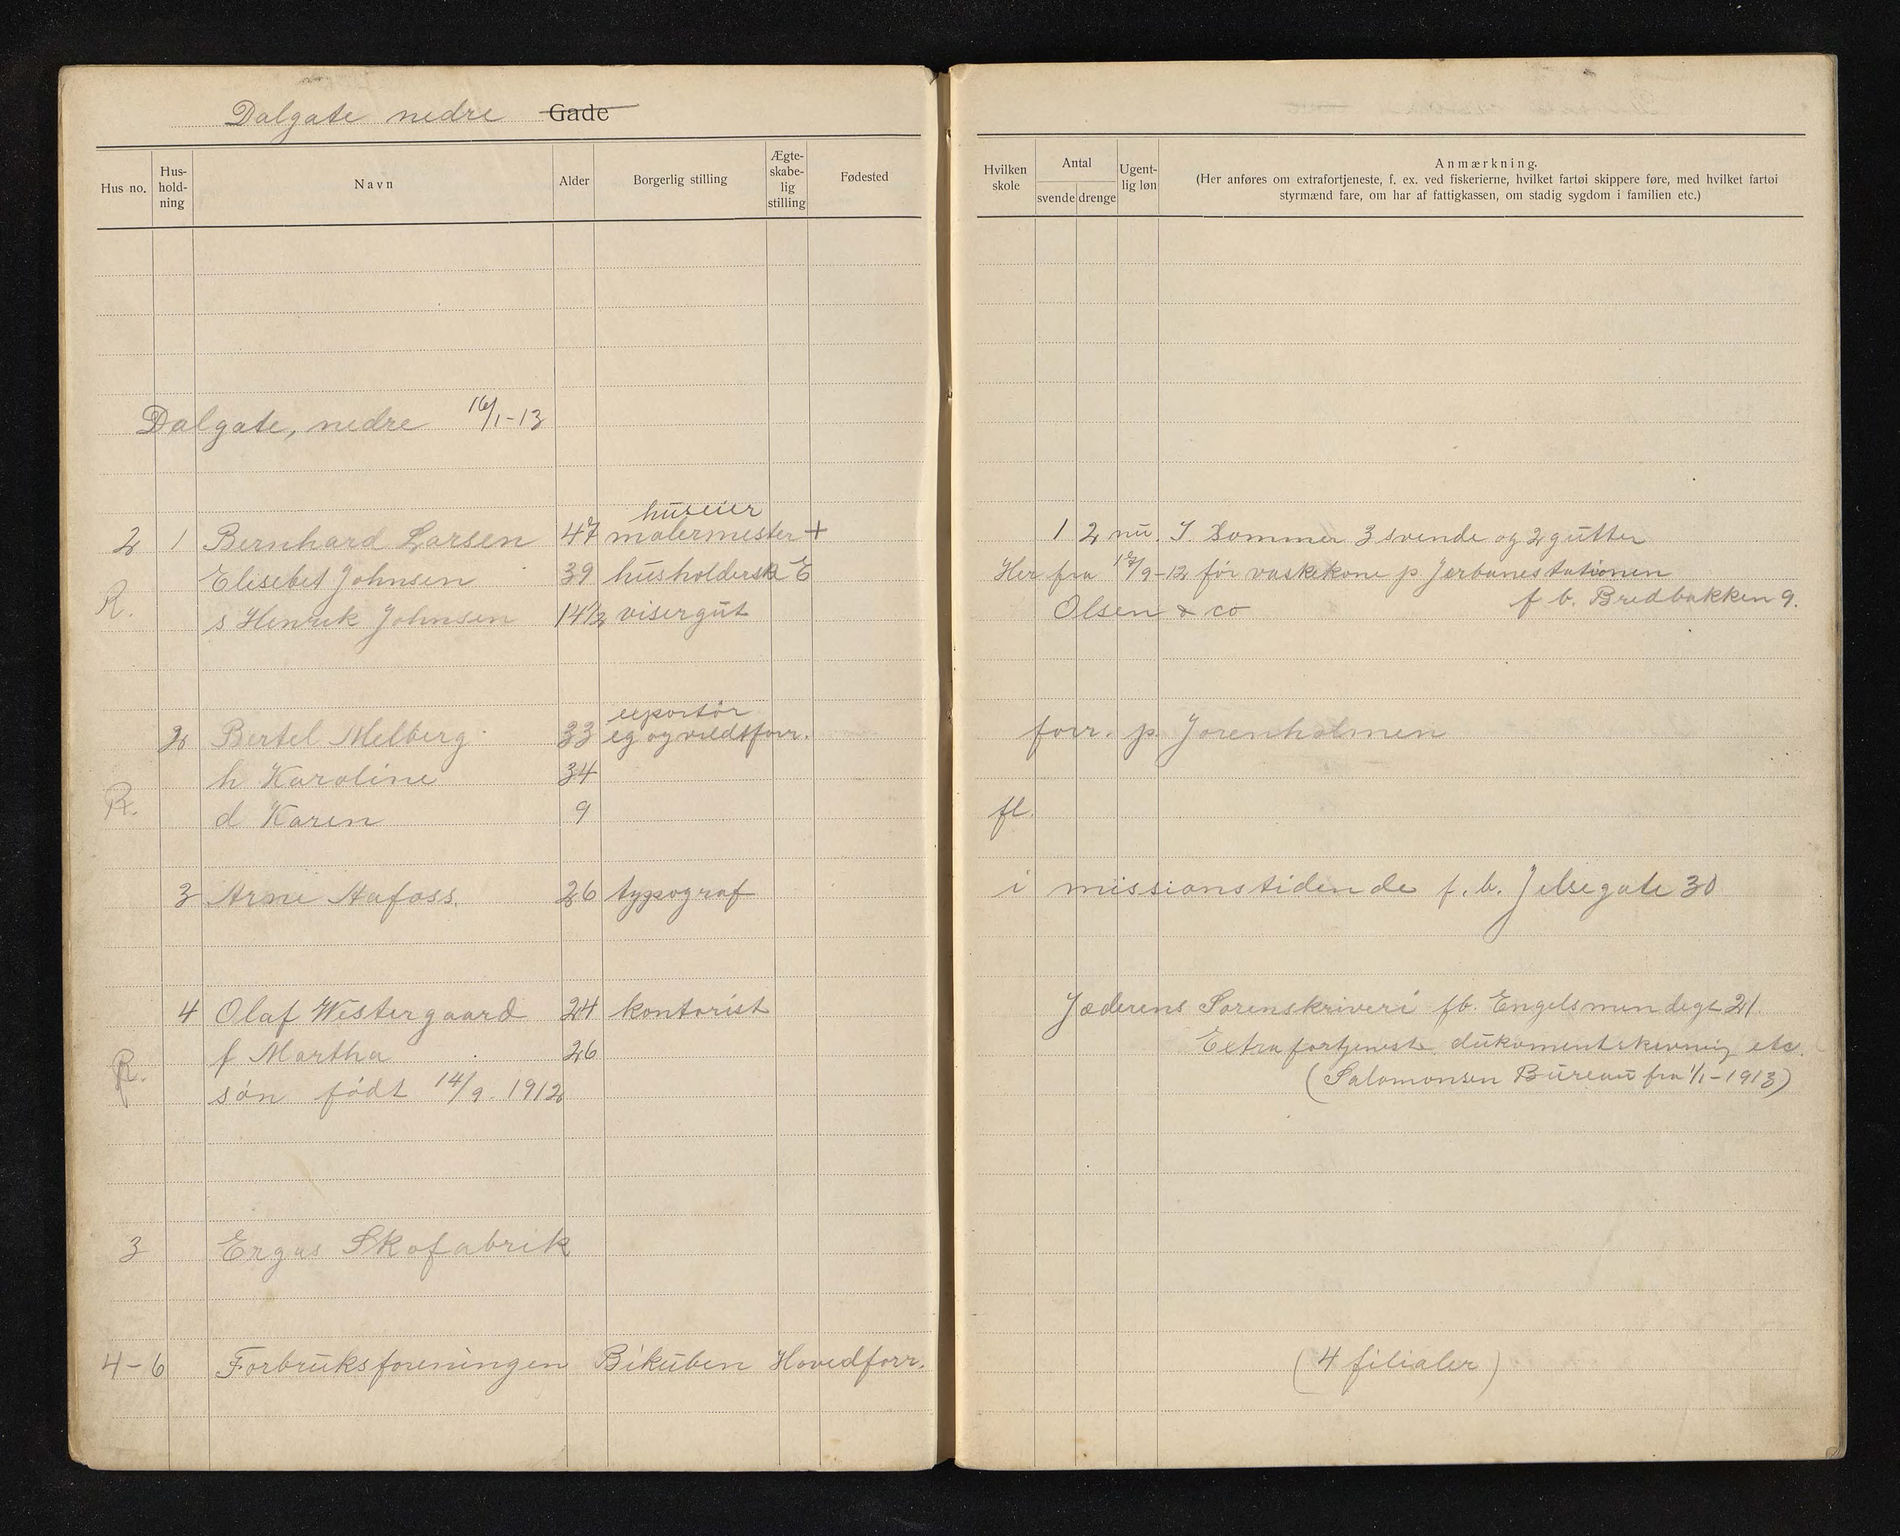 Dalgate nedre Gade
Hus no. Hus-hold-ning Navn Alder Borgerlig stilling Ægte-skabe-lig stilling Fødested
Hvilken skole Antal svende drenge Ugent-lig løn Anmærkning.
(Her anføres om extrafortjeneste, f. ex. ved fiskerierne, hvilket fartøi skippere føre, med hvilket fartøi
styrmænd fare, om har af fattigkassen, om stadig sygdom i familien etc.)
Dalgate, nedre 16/1-13
huseier
2 1 Bernhard Larsen 47 malermester + 1 2 nu. I Sommer 3 svende og 2 gutter
Elisebet Johnsen 39 husholdersk E Her fra 12/9-12 før vaskekone p Jerbanestationen
f b. Bredbakken 9.
R. s Henrik Johnsen 14 1/2 visergut Olsen & co
exportør
2 Bertel Melberg 33 eg og vildtforr. forr. p. Jorenholmen
h Karoline 34
R. d Karen 9 fl.
3 Arne Aafoss. 26 typograf i missionstidende f. b. Jelsegate 30
4 Olaf Westergaard 24 kontorist Jæderens Sorenskriveri fb. Engelsmindegt 21.
f Martha 26 Extra fortjeneste dukumentskrivnig etc.
R. søn født 14/9. 1912 (Salomonsen Bureau fra 1/1-1913)
3 Ergas Skofabrik
4-6 Forbruksforeningen Bikuben Hovedforr. (4 filialer)